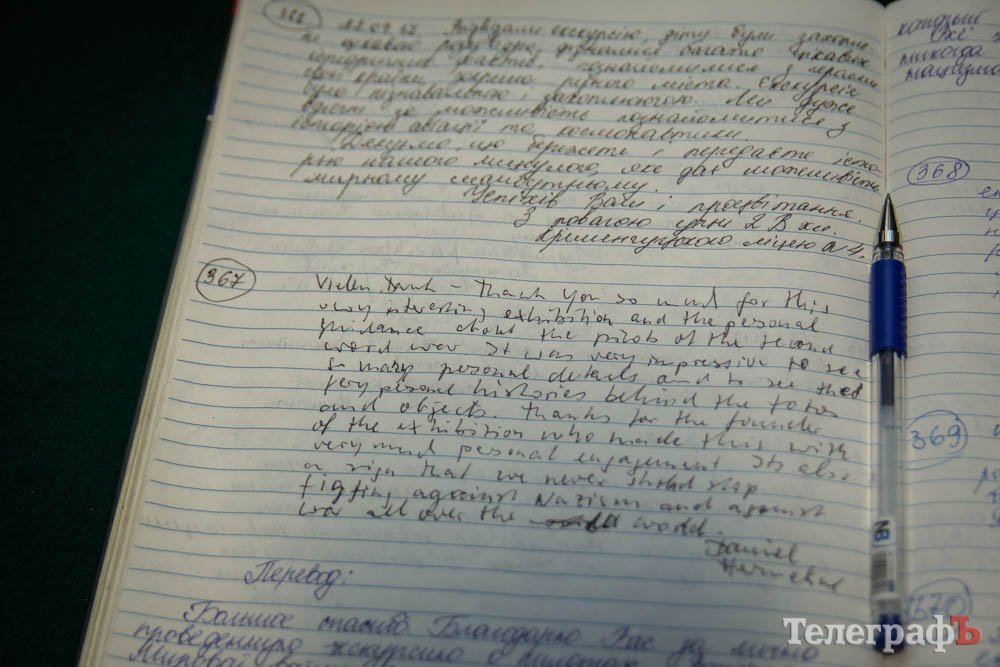 366
12.09.17 Відвідали екскурсію, діти були захопле-
ні цікавою розповіддю, дізналися багато цікавих
історичних фактів, познайомилися з героями
своєї країни, нашого рідного міста. Екскурсія
була пізнавальною і захоплюючою. Ми дуже
вдячні за можливість познайомитися з
історією авіації та космонавтики.
Дякуємо, що бережете і передаєте істо-
рію нашого минулого, яке дає можливість
мирному майбутньому.
Успіхів Вам і процвітання.
З повагою учні 2 В кл.
Кременчуцького ліцею №4.
367
Vielen Dank – thank you so much for this
very interesting exhibition and the personal
guidance about the pilots of the second
word war. It was very impressive to see
so many personal details and to see that
very personal histories behind the fotos
and objects. Thanks for the founder
of the exhibition who made this with
very much personal engagement. Its also
a sign that we never should stop
figting against Nazism and against
war all over the world.
Daniel
Перевод:
Большое спасибо. Благодарю Вас за лично
проведенную экскурсию о пилотах
Мировой
который
никогда
нацизма
368
369
370
NB
ТелеграфЪ